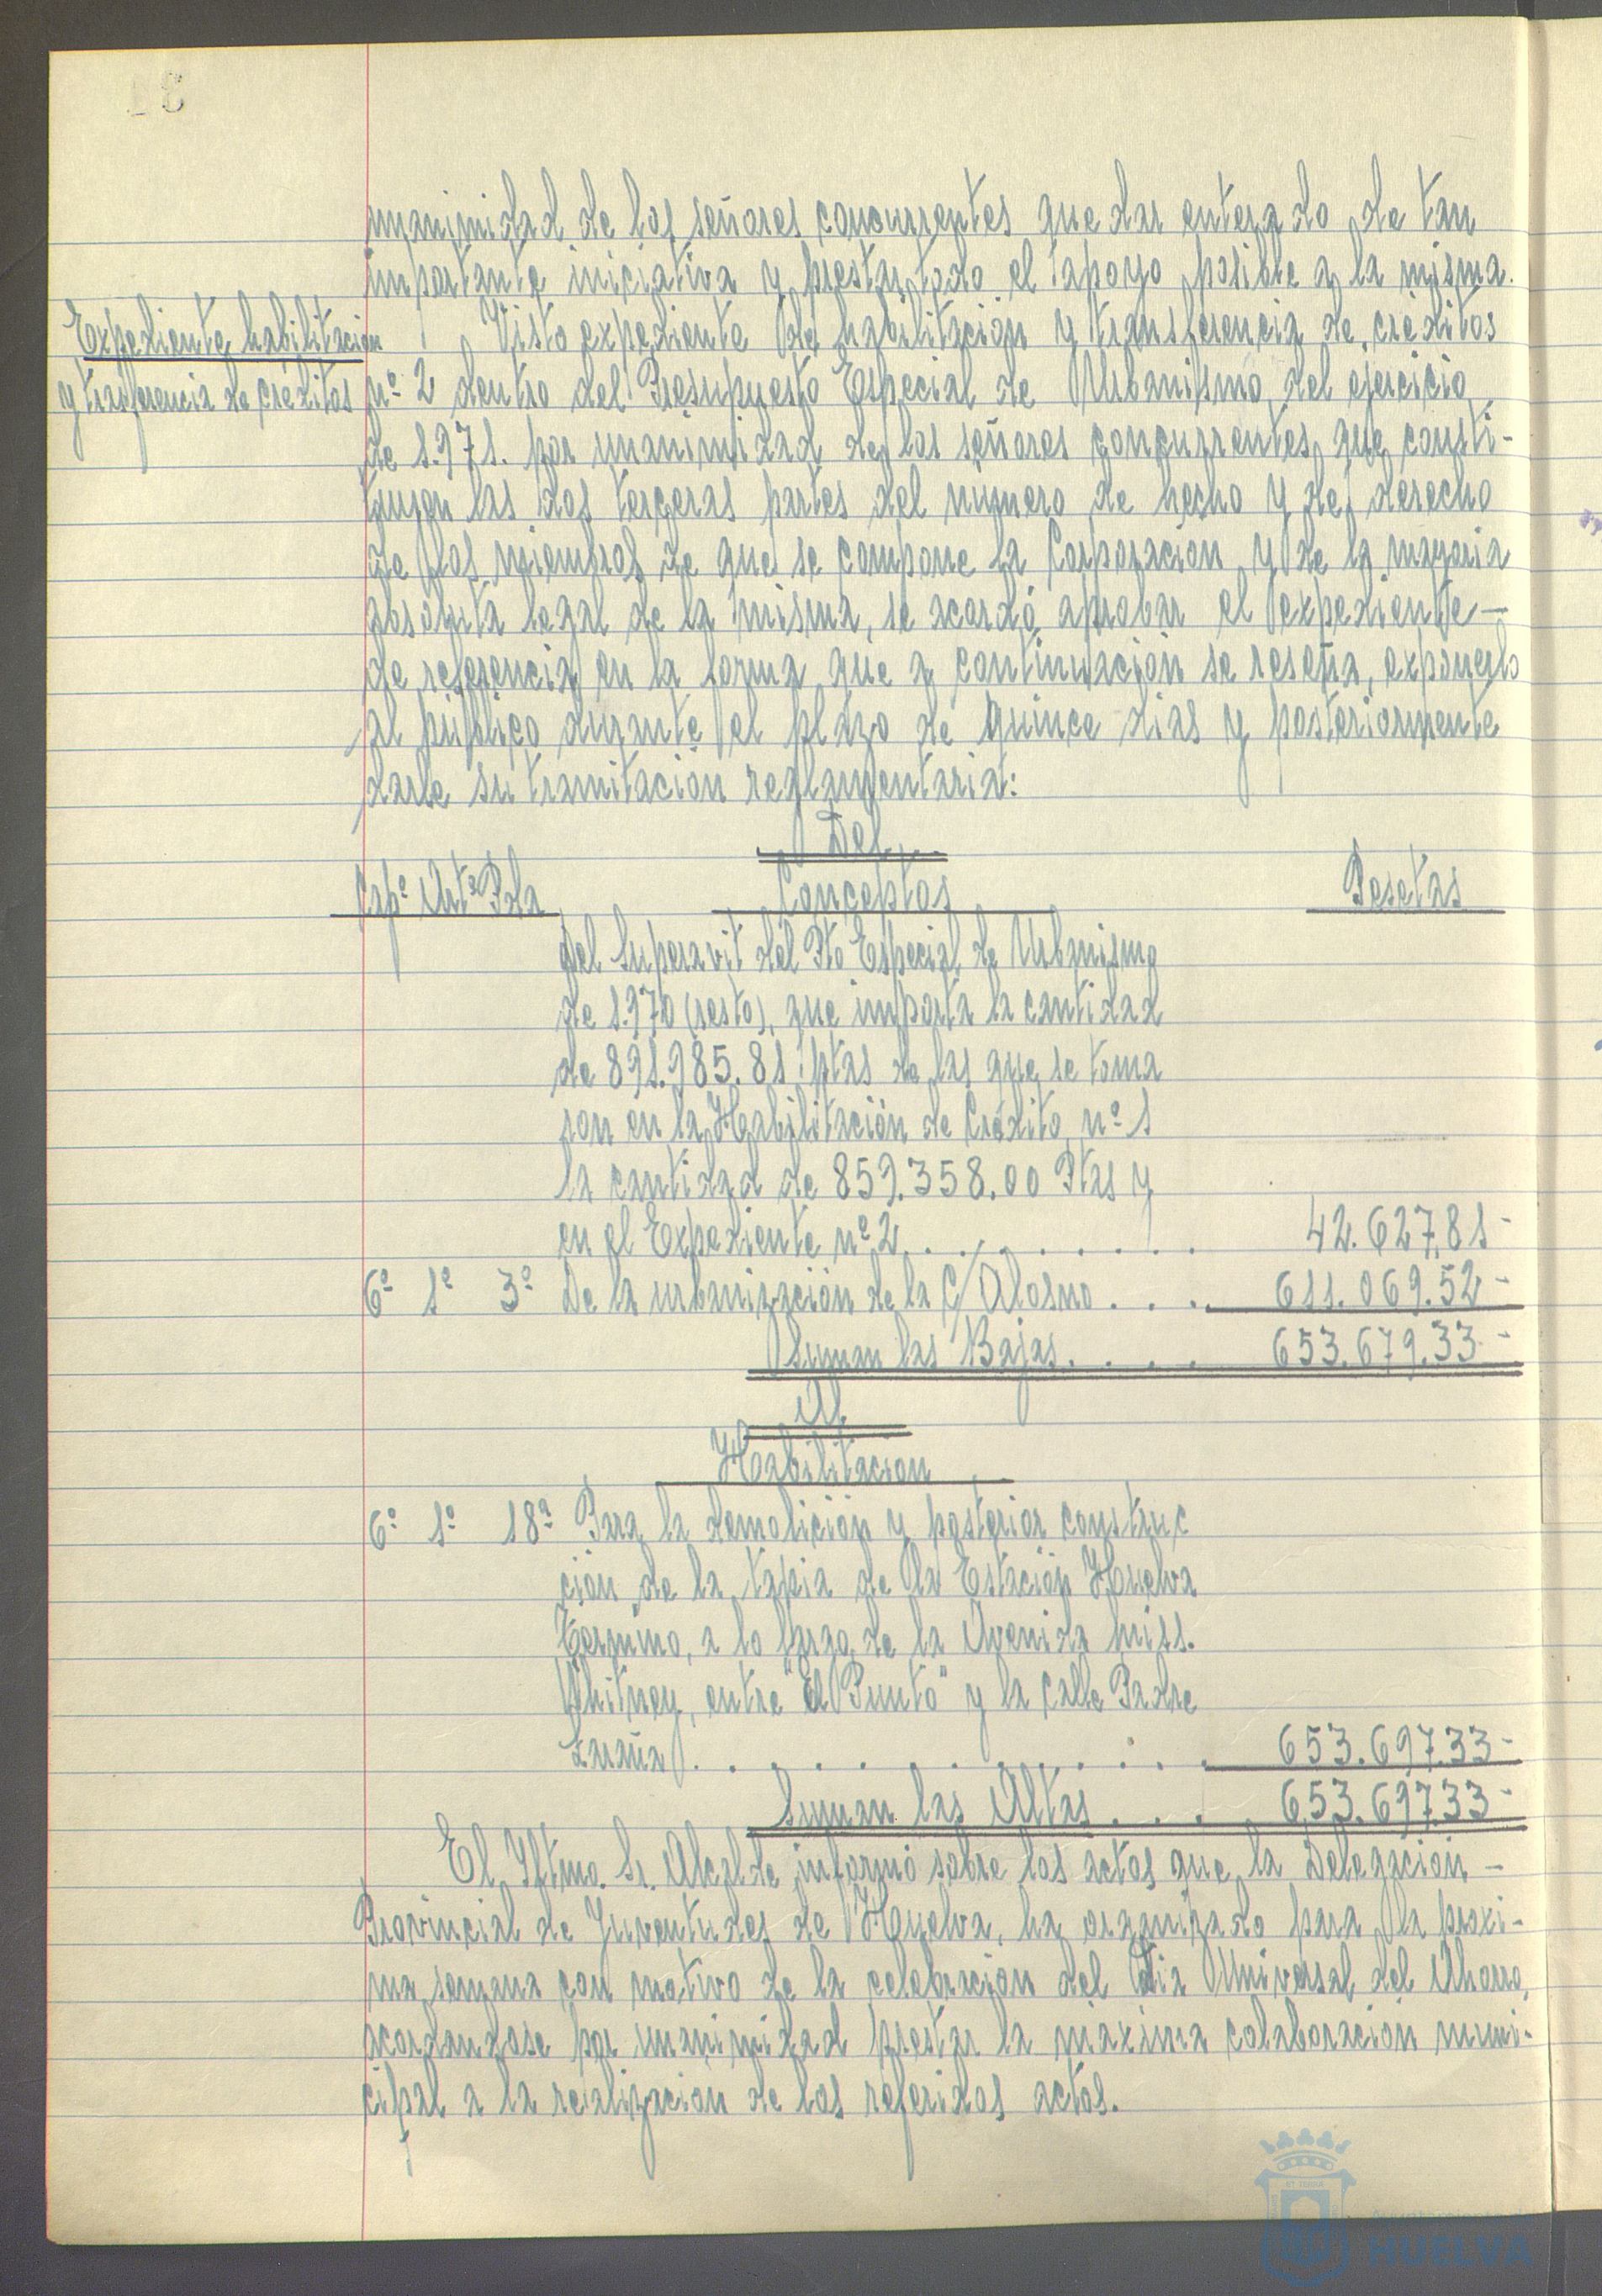 unanimidad de los señores concurrentes quedar enterado de tan
importante iniciativa y prestar todo el apoyo posible a la misma.
Expediente habilitacion
y trasferencia de creditos
Visto expediente de habilitación y transferencia de créditos
nº 2 dentro del Presupuesto Especial de Urbanismo del ejercicio
de 1.971. por unanimidad de los señores concurrentes, que consti-
tuyen las dos terceras partes del numero de hecho y de derecho
de los miembros de que se compone la Corporación y de la mayoria
absoluta legal de la misma, se acordó aprobar el expediente-
de referencia en la forma que a continuación se reseña, exponerlo
al público durante el plazo de quince dias y posteriormente
darle su tramitación reglamentaria:
Del
Capº Artº Pda Conceptos Pesetas
Del Superavit del Pto Especial de Urbanismo
de 1.970 (resto), que importa la cantidad
de 891.985.81 ptas de las que se toma
ron en la Habilitación de Crédito nº 1
la cantidad de 859.358.00 Ptas y
en el Expediente nº 2 . . . . . . . 42.627,81-
6º 1º 3º De la urbanización de la C/ Alosno . . . . 611.069.52-
Suman las Bajas . . . . 653.679.33-
Al
Habilitacion
6º 1º 18ª Para la demolición y posterior construc
ción de la tapia de la Estación Huelva
Término, a lo largo de la Avenida Miss.
Whitney, entre "El Punto" y la calle Padre
. . . . . . . . . . . . 653.697.33-
Suman las Altas . . . . 653.697.33-
El Iltmo. Sr. Alcalde informó sobre los actos que la Delegación-
Provincial de Juventudes de Huelva, ha organizado para la proxi-
ma semana con motivo de la celebración del Dia Universal del Ahorro,
acordandose por unanimidad prestar la máxima colaboración muni-
cipal a la realización de los referidos actos.
HUELVA